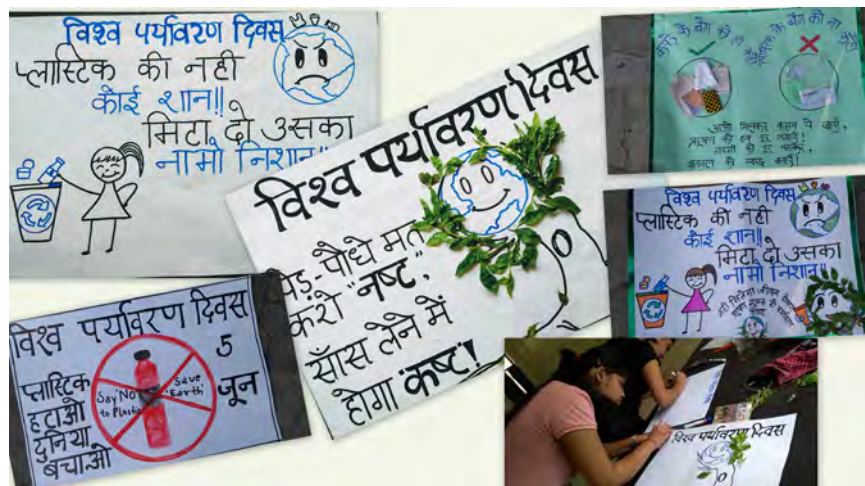 विश्व पर्यावरण दिवस
प्लास्टिक की नही
कोई शान!!
मिटा दो उसका
नामो निशान!!
विश्व पर्यावरण दिवस
पेड़-पौधे मत
करो "नष्ट",
साँस लेने में
होगा "कष्ट"!
विश्व पर्यावरण दिवस
5
जून
प्लास्टिक
हटाओ
दुनिया
बचाओ
Say 'NO'
to Plastic
Save
Earth
कपड़े के बैग को हाँ
प्लास्टिक के बैग को ना
विश्व पर्यावरण दिवस
प्लास्टिक की नही
कोई शान!!
मिटा दो उसका
नामो निशान!!
विश्व पर्यावरण दिवस